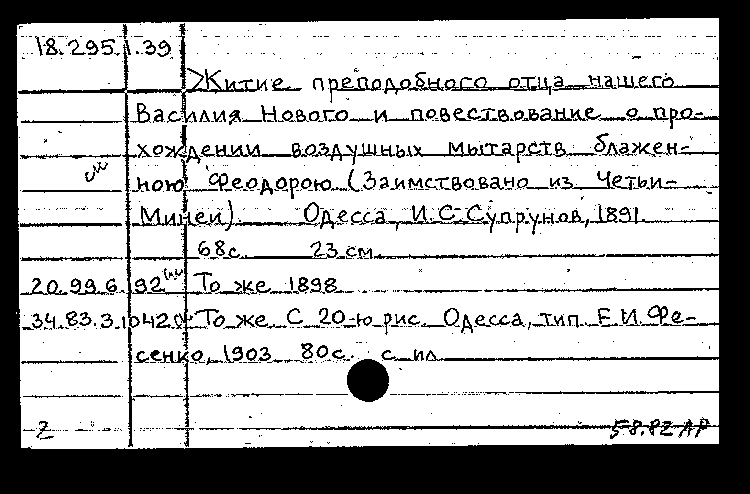 18.295.1.39
Житие преподобного отца нашего
Василия Нового и повествование о про-
хождении воздушных мытарств блажен-
ною Феодорою (Заимствовано из Четьи-
Миней). Одесса, И.С. Супрунов, 1891.
68с. 23 см.
20.99.6.92 То же 1898
34.83.3. То же. С 20-ю рис. Одесса, тип. Е.И. Фе-
сенко, 1903 80с. с ил.
2 58.82 АР